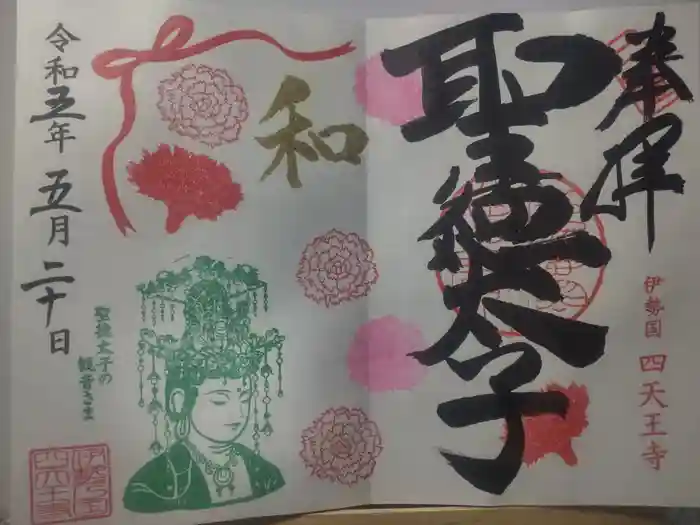 奉拝
聖徳太子
伊勢国 四天王寺
和
聖徳太子の
観音さま
令和五年 五月二十日